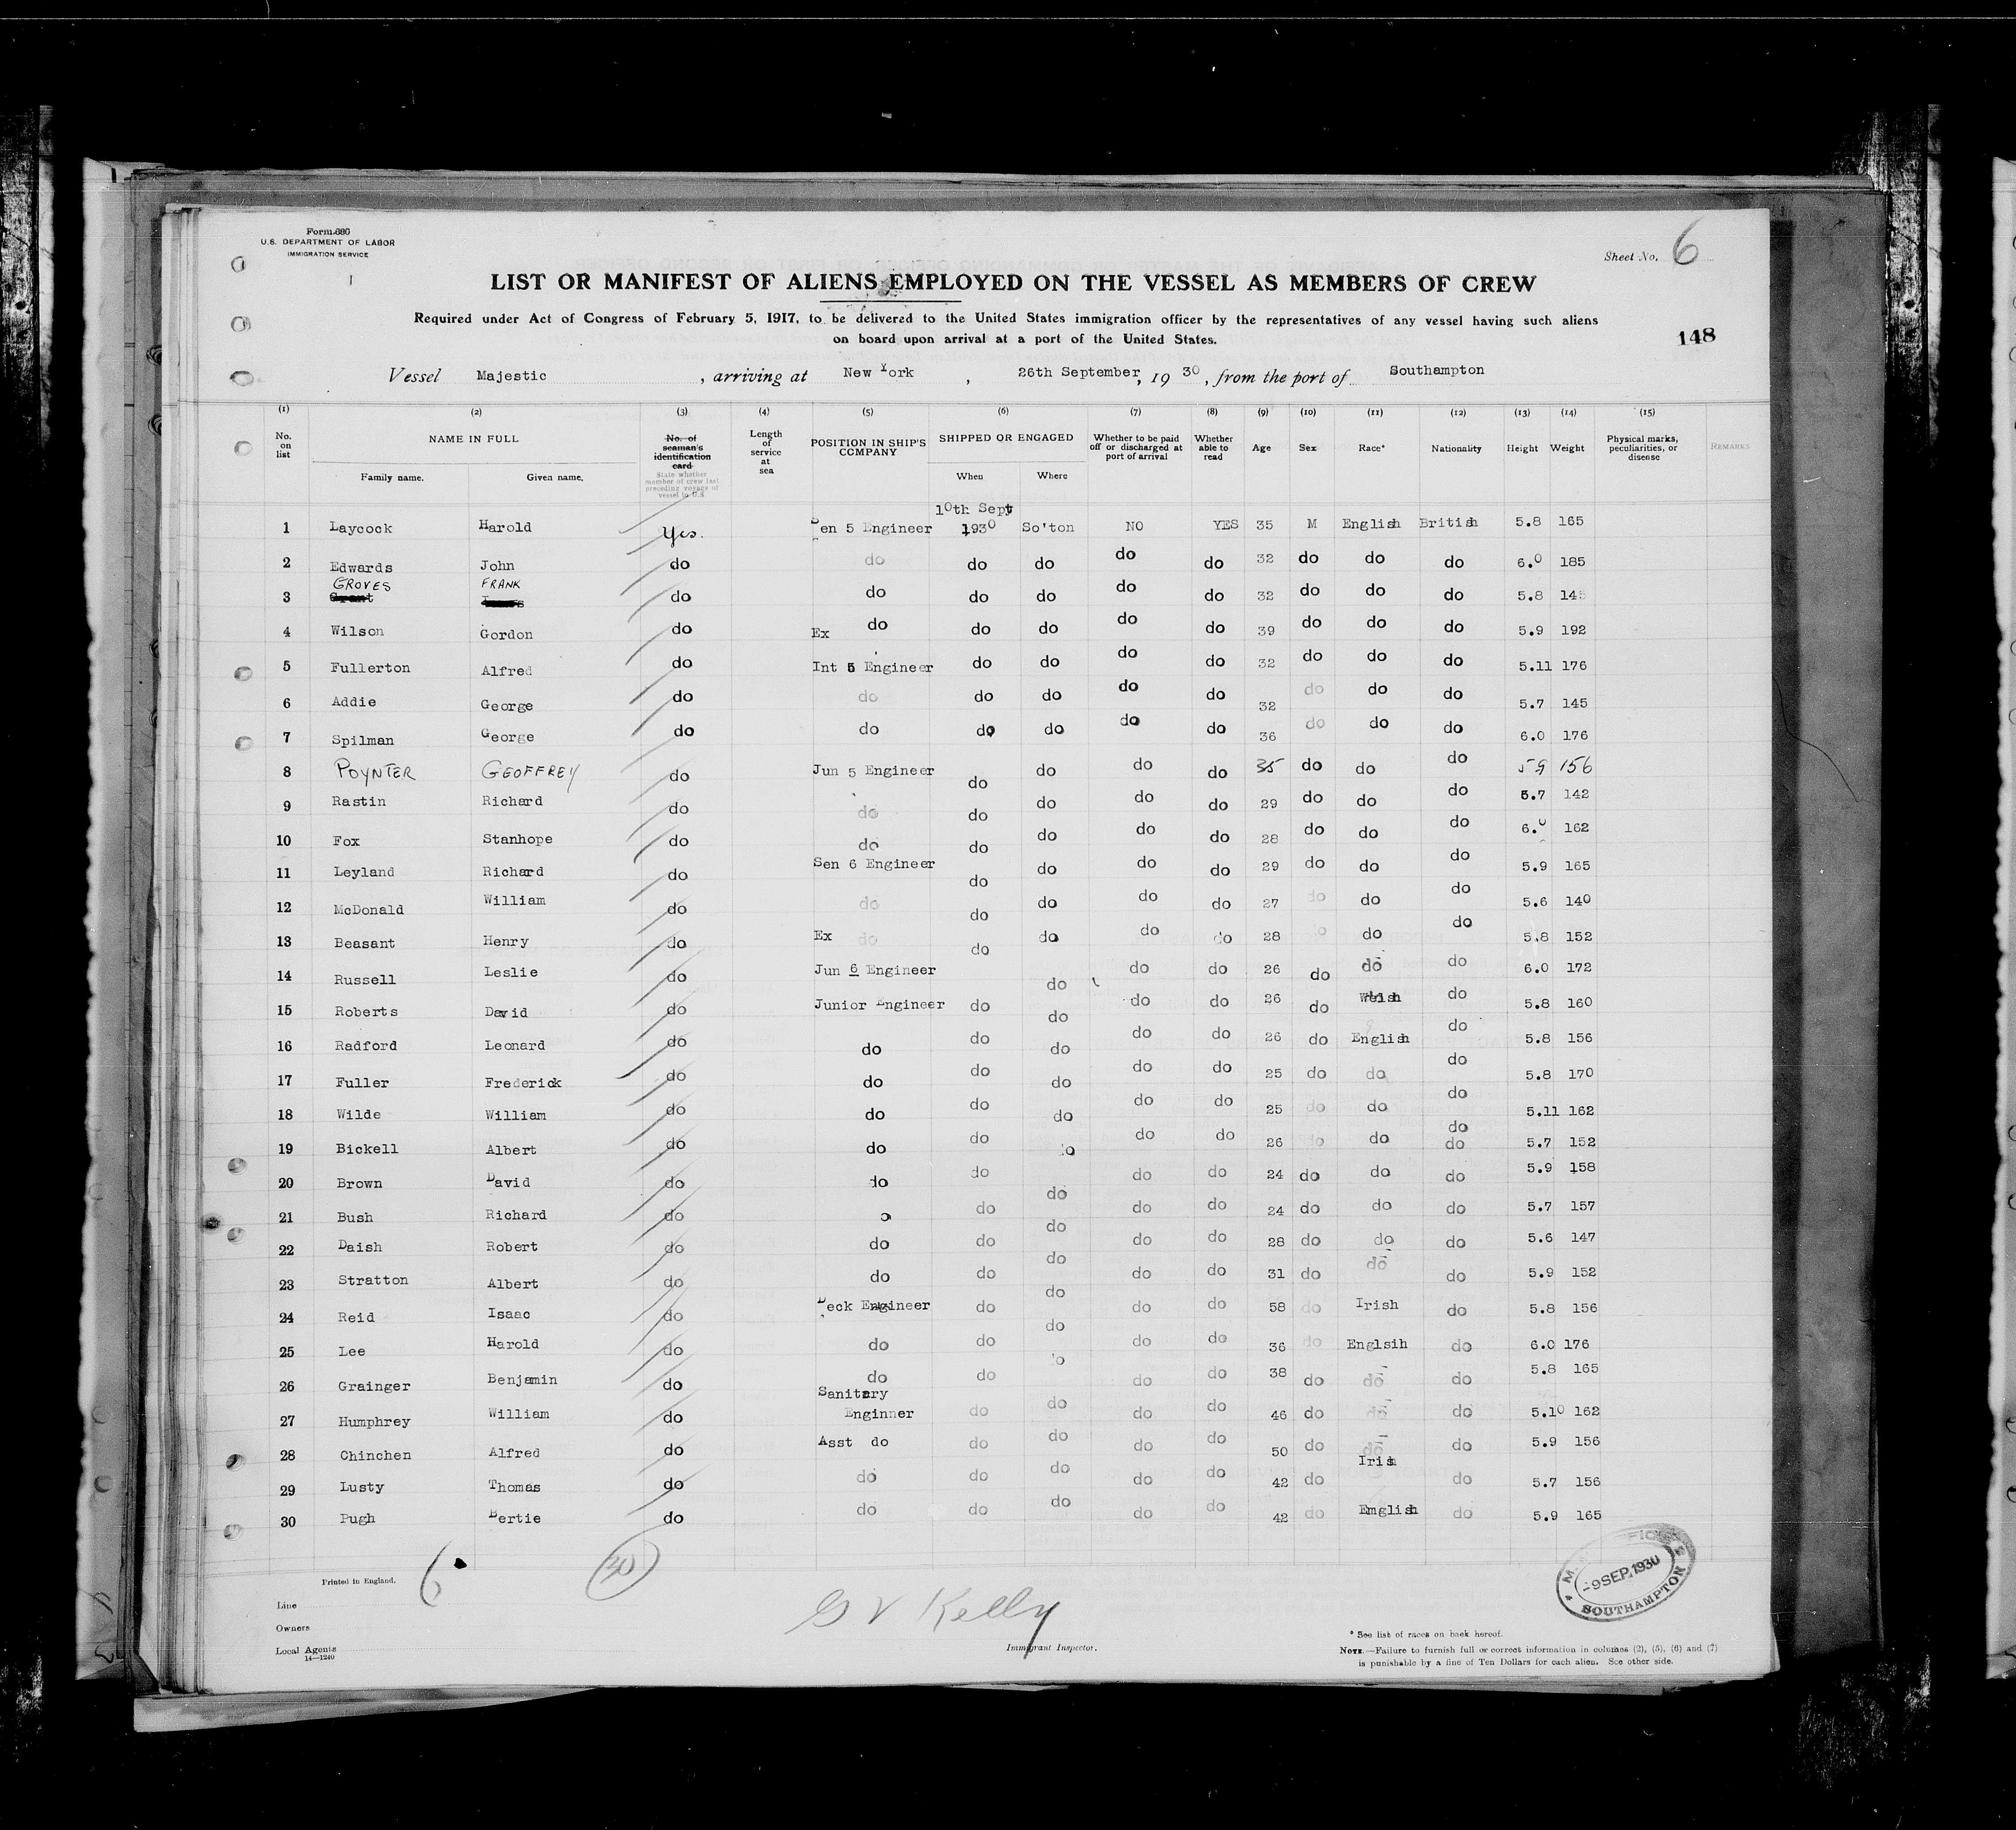 Form 686
U.S. DEPARTMENT OF LABOR
IMMIGRATION SERVICE
Sheet No. 6
LIST OR MANIFEST OF ALIENS EMPLOYED ON THE VESSEL AS MEMBERS OF CREW
Required under Act of Congress of February 5, 1917, to be delivered to the United States immigration officer by the representatives of any vessel having such aliens
on board upon arrival at a port of the United States.
148
Vessel Majestic , arriving at New York , 26th September, 19 30 , from the port of Southampton
(1) (2) (3) (4) (5) (6) (7) (8) (9) (10) (11) (12) (13) (14) (15)
No. on list NAME IN FULL Family name. Given name. No. of seaman's identification card State whether member of crew last preceding voyage of vessel to U.S. Length of service at sea POSITION IN SHIP'S COMPANY SHIPPED OR ENGAGED When Where Whether to be paid off or discharged at port of arrival Whether able to read Age Sex Race* Nationality Height Weight Physical marks, peculiarities, or disease REMARKS
1 Laycock Harold Yes. Sen 5 Engineer 10th Sept 1930 So'ton NO YES 35 M English British 5.8 165
2 Edwards John do do do do do do 32 do do do 6.0 185
3 GROVES FRANK do do do do do do 32 do do do 5.8 145
4 Wilson Gordon do Ex do do do do do 39 do do do 5.9 192
5 Fullerton Alfred do Int 5 Engineer do do do do 32 do do do 5.11 176
6 Addie George do do do do do do 32 do do do 5.7 145
7 Spilman George do do do do do do 36 do do do 6.0 176
8 POYNTER GEOFFREY do Jun 5 Engineer do do do do 35 do do do 5 9 156
9 Rastin Richard do do do do do do 29 do do do 5.7 142
10 Fox Stanhope do do do do do do 28 do do do 6.0 162
11 Leyland Richard do Sen 6 Engineer do do do do 29 do do do 5.9 165
12 McDonald William do do do do do do 27 do do do 5.6 140
13 Beasant Henry do Ex do do do do do 28 do do do 5.8 152
14 Russell Leslie do Jun 6 Engineer do do do 26 do do do 6.0 172
15 Roberts David do Junior Engineer do do do do 26 do Welsh do 5.8 160
16 Radford Leonard do do do do do do 26 do English do 5.8 156
17 Fuller Frederick do do do do do do 25 do do do 5.8 170
18 Wilde William do do do do do do 25 do do do 5.11 162
19 Bickell Albert do do do do do do 26 do do do do 5.7 152
20 Brown David do do do do do do 24 do do do 5.9 158
21 Bush Richard do o do do do do 24 do do do 5.7 157
22 Daish Robert do do do do do do 28 do do do 5.6 147
23 Stratton Albert do do do do do do 31 do do do 5.9 152
24 Reid Isaac do Deck Engineer do do do do 58 do Irish do 5.8 156
25 Lee Harold do do do do do do 36 do Englsih do 6.0 176
26 Grainger Benjamin do do do do do do 38 do do do 5.8 165
27 Humphrey William do Sanitary Enginner do do do do 46 do do do 5.10 162
28 Chinchen Alfred do Asst do do do do do 50 do do do 5.9 156
29 Lusty Thomas do do do do do do 42 do Irish do 5.7 156
30 Pugh Bertie do do do do do do 42 do English do 5.9 165
6
30
Printed in England.
Line
Owners
Local Agents
14—1240
G V Kelly
Immigrant Inspector.
-9 SEP. 1930
SOUTHAMPTON
* See list of races on back hereof.
NOTE.—Failure to furnish full or correct information in columns (2), (5), (6) and (7)
is punishable by a fine of Ten Dollars for each alien. See other side.